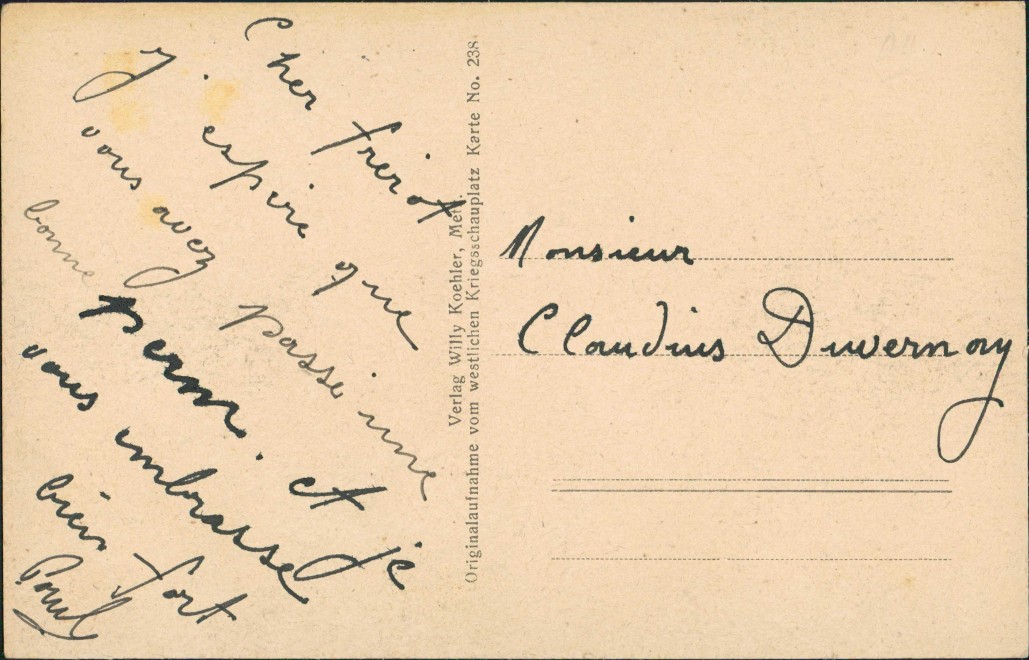 Cher frérot
J'espère que
vous avez passé une
bonne perm. et je
vous embrasse
bien fort
Paul
Verlag Willy Koehler, Metz.
Originalaufnahme vom westlichen Kriegsschauplatz Karte No. 238
Monsieur
Claudius Duvernay